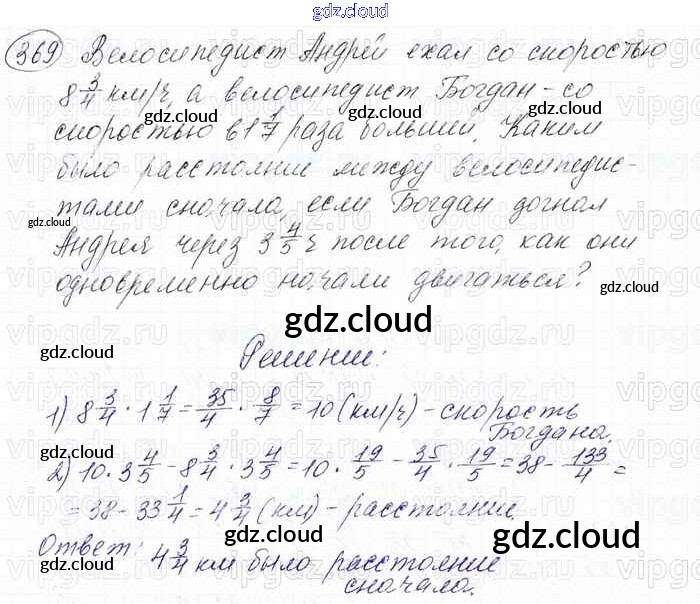 gdz.cloud
369 Велосипедист Андрей ехал со скоростью
8 3/4 км/ч, а велосипедист Богдан - со
скоростью в 1 1/7 раза большей. Каким
было расстояние между велосипедис-
тами сначала, если Богдан догнал
Андрея через 3 4/5 ч после того, как они
одновременно начали двигаться?
Решение:
1) 8 3/4 · 1 1/7 = 35/4 · 8/7 = 10 (км/ч) - скорость
Богдана.
2) 10 · 3 4/5 - 8 3/4 · 3 4/5 = 10 · 19/5 - 35/4 · 19/5 = 38 - 133/4 =
= 38 - 33 1/4 = 4 3/4 (км) - расстояние.
Ответ: 4 3/4 км было расстояние
сначала.
gdz.cloud
gdz.cloud
gdz.cloud
gdz.cloud
gdz.cloud
gdz.cloud
gdz.cloud
gdz.cloud
gdz.cloud
gdz.cloud